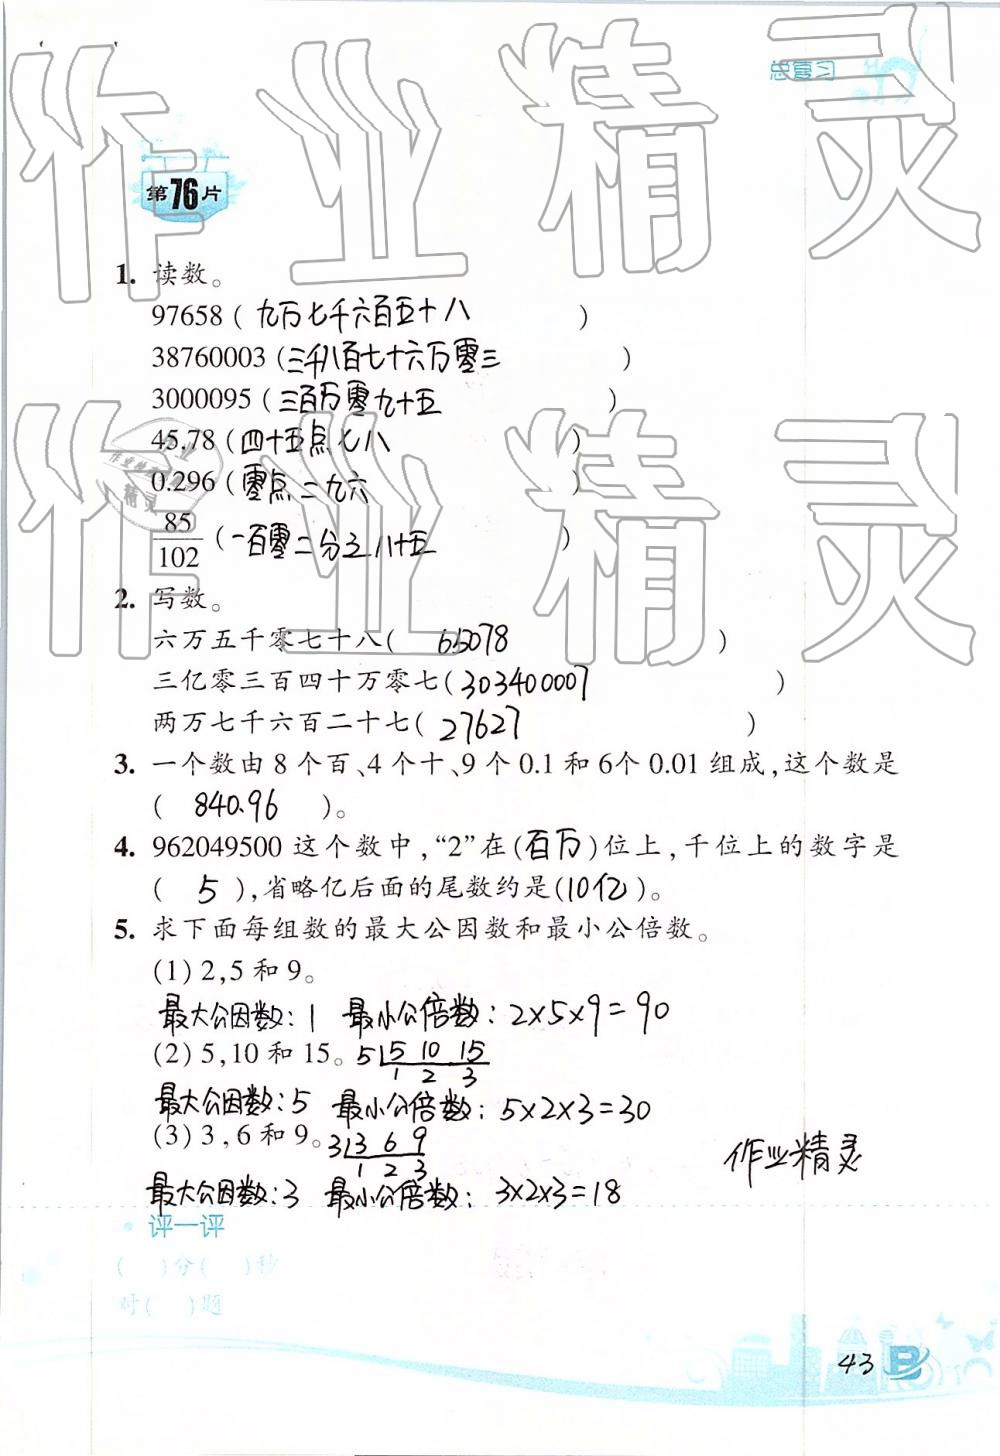 总复习
作业精灵
第76片
1. 读数。
97658(九万七千六百五十八)
38760003(三千八百七十六万零三)
3000095(三百万零九十五)
作业精灵
45.78(四十五点七八)
0.296(零点二九六)
85/102(一百零二分之八十五)
2. 写数。
六万五千零七十八(65078)
三亿零三百四十万零七(303400007)
两万七千六百二十七(27627)
3. 一个数由8个百、4个十、9个0.1和6个0.01组成,这个数是
(840.96)。
4. 962049500这个数中,“2”在(百万)位上,千位上的数字是
(5),省略亿后面的尾数约是(10亿)。
5. 求下面每组数的最大公因数和最小公倍数。
(1)2,5和9。
最大公因数:1 最小公倍数:2×5×9=90
(2)5,10和15。5 5 10 15
1 2 3
最大公因数:5 最小公倍数:5×2×3=30
(3)3,6和9。3 3 6 9
1 2 3
作业精灵
最大公因数:3 最小公倍数:3×2×3=18
·评一评
( )分( )秒
对( )题
43 B